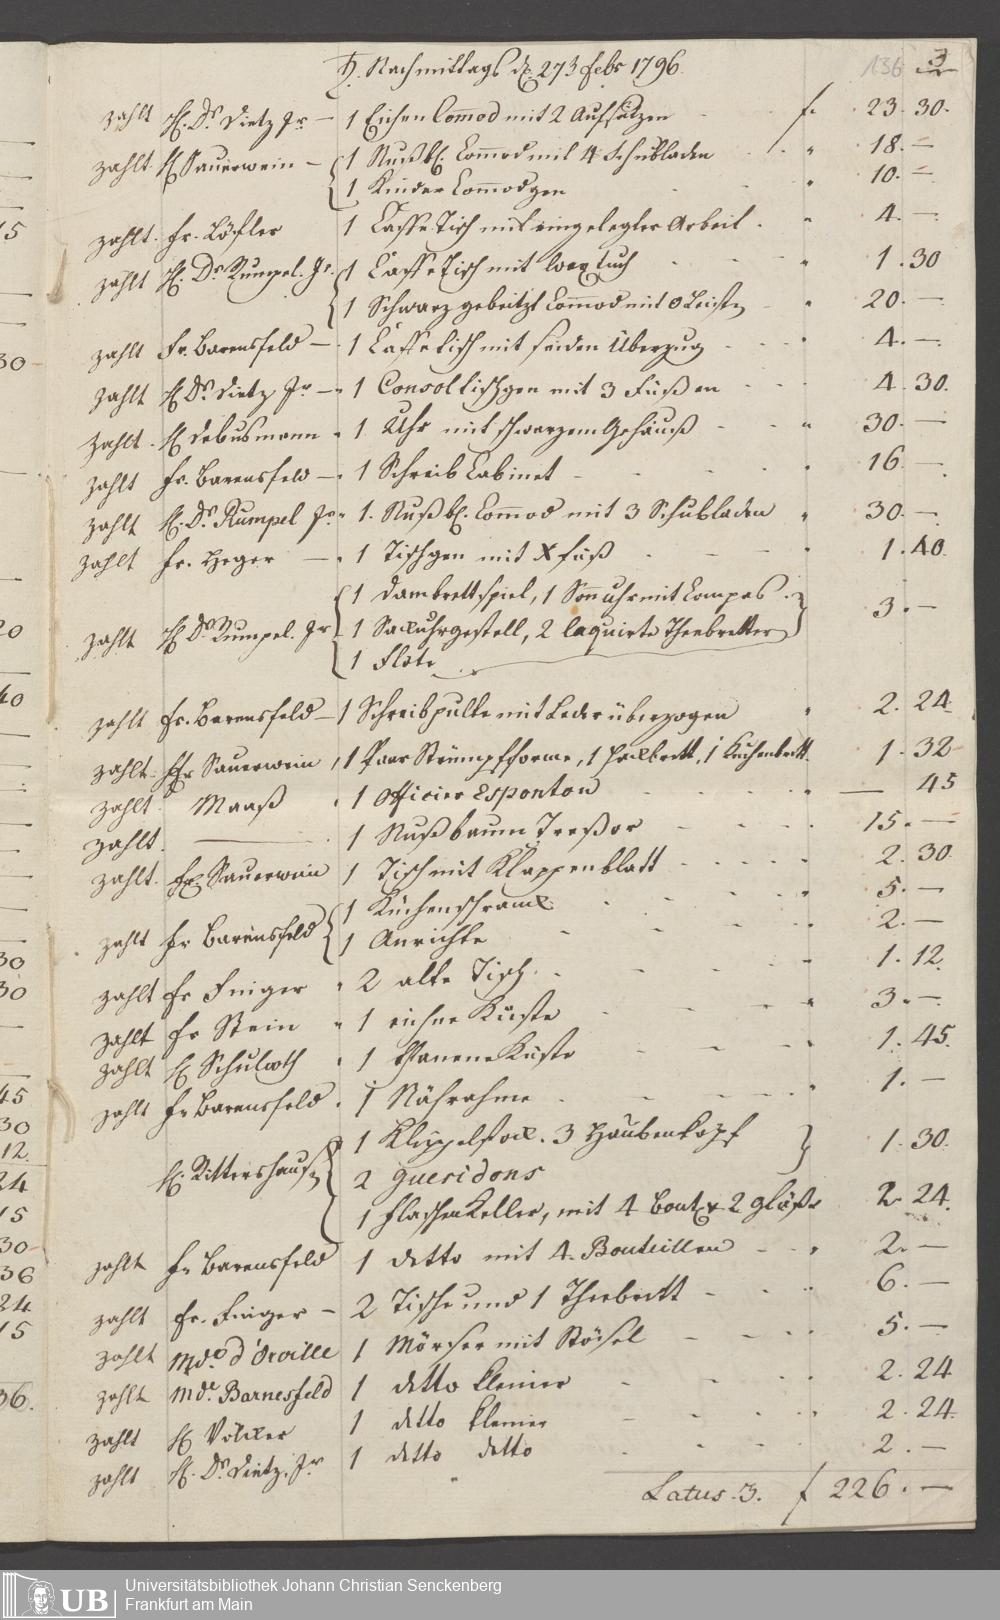 ♄. Nachmittags d. 27 febr 1796. 136 3
zahlt H. Dr. Dietz Jr. — 1 Eichen Comod mit 2 Aufsätzen f. 23. 30.
zahlt H Sauerwein — 1 Nußb. Comod mit 4 Schubladen " 18. —
1 Kinder Comodgen " 10. —
zahlt. fr. Löfler 1 Caffe Tisch mit eingelegter Arbeit " 4. —
zahlt H. Dr. Rumpel. Jr. 1 Caffe Tisch mit Waxtuch " 1. 30
1 Schwarz gebeitzt Comod mit Leisten " 20. —
zahlt Fr. Barensfeld — 1 Caffe tisch mit seiden Überzug " 4. —
zahlt H Dr. Dietz Jr — 1 Consol tischgen mit 3 Füßen 4. 30.
zahlt. H Debusmann " 1 Uhr mit schwarzem Gehäuß " 30. —
zahlt fr. Barensfeld — 1 Schreib Cabinet " 16 —
zahlt H. Dr. Rumpel Jr " 1. Nußb. Comod mit 3 Schubladen " 30. —
zahlt fr. Heger — " 1 Tischgen mit X fuß " 1. 40.
1 Dambrettspiel, 1 Sonnuhr mit Compas.
zahlt H Dr. Rumpel. Jr 1 Sackuhrgestell, 2 laquirte Theebretter 3. —
1 Flöte
zahlt fr. Barensfeld — 1 Schreibpulte mit Leder überzogen " 2. 24.
zahlt. Sauerwein, 1 Paar Strümpfforme, 1 Hackbrett, 1 Kuchenbrett. 1. 32
zahlt Maaß " 1 Officier Esponton " — 45
zahlt. — 1 Nußbaum Treßor 15. —
zahlt. Sauerwein 1 Tisch mit Klappenblatt 2. 30.
1 Küchenschrank " 5. —
zahlt fr Barensfeld 1 Anrichte 2. —
zahlt fr Finiger " 2 alte Tisch " 1. 12.
zahlt fr Stein " 1 eichne Kiste " 3. —
zahlt H Schulroth " 1 Tanene Kiste 1. 45.
zahlt fr Barensfeld. 1 Nährahme " 1. —
1 Klöppelstock. 3 Haubenköpf
H. Rittershausen 2 Gueridons 1. 30.
1 Flaschen Keller, mit 4 bout & 2 gläser 2. 24.
zahlt fr Barensfeld 1 ditto mit 4. Bouteillen " 2. —
zahlt fr. Finiger — 2 Tische und 1 Theebrett 6. —
zahlt Mde. d'Orville 1 Mörser mit Stösel 5. —
zahlt Mde. Barnesfeld 1 ditto kleiner 2. 24
zahlt H Völcker 1 ditto kleiner " 2. 24.
zahlt H. Dr. Dietz. Jr 1 ditto ditto 2. —
Latus. 3. f 226. —
Universitätsbibliothek Johann Christian Senckenberg
UB Frankfurt am Main